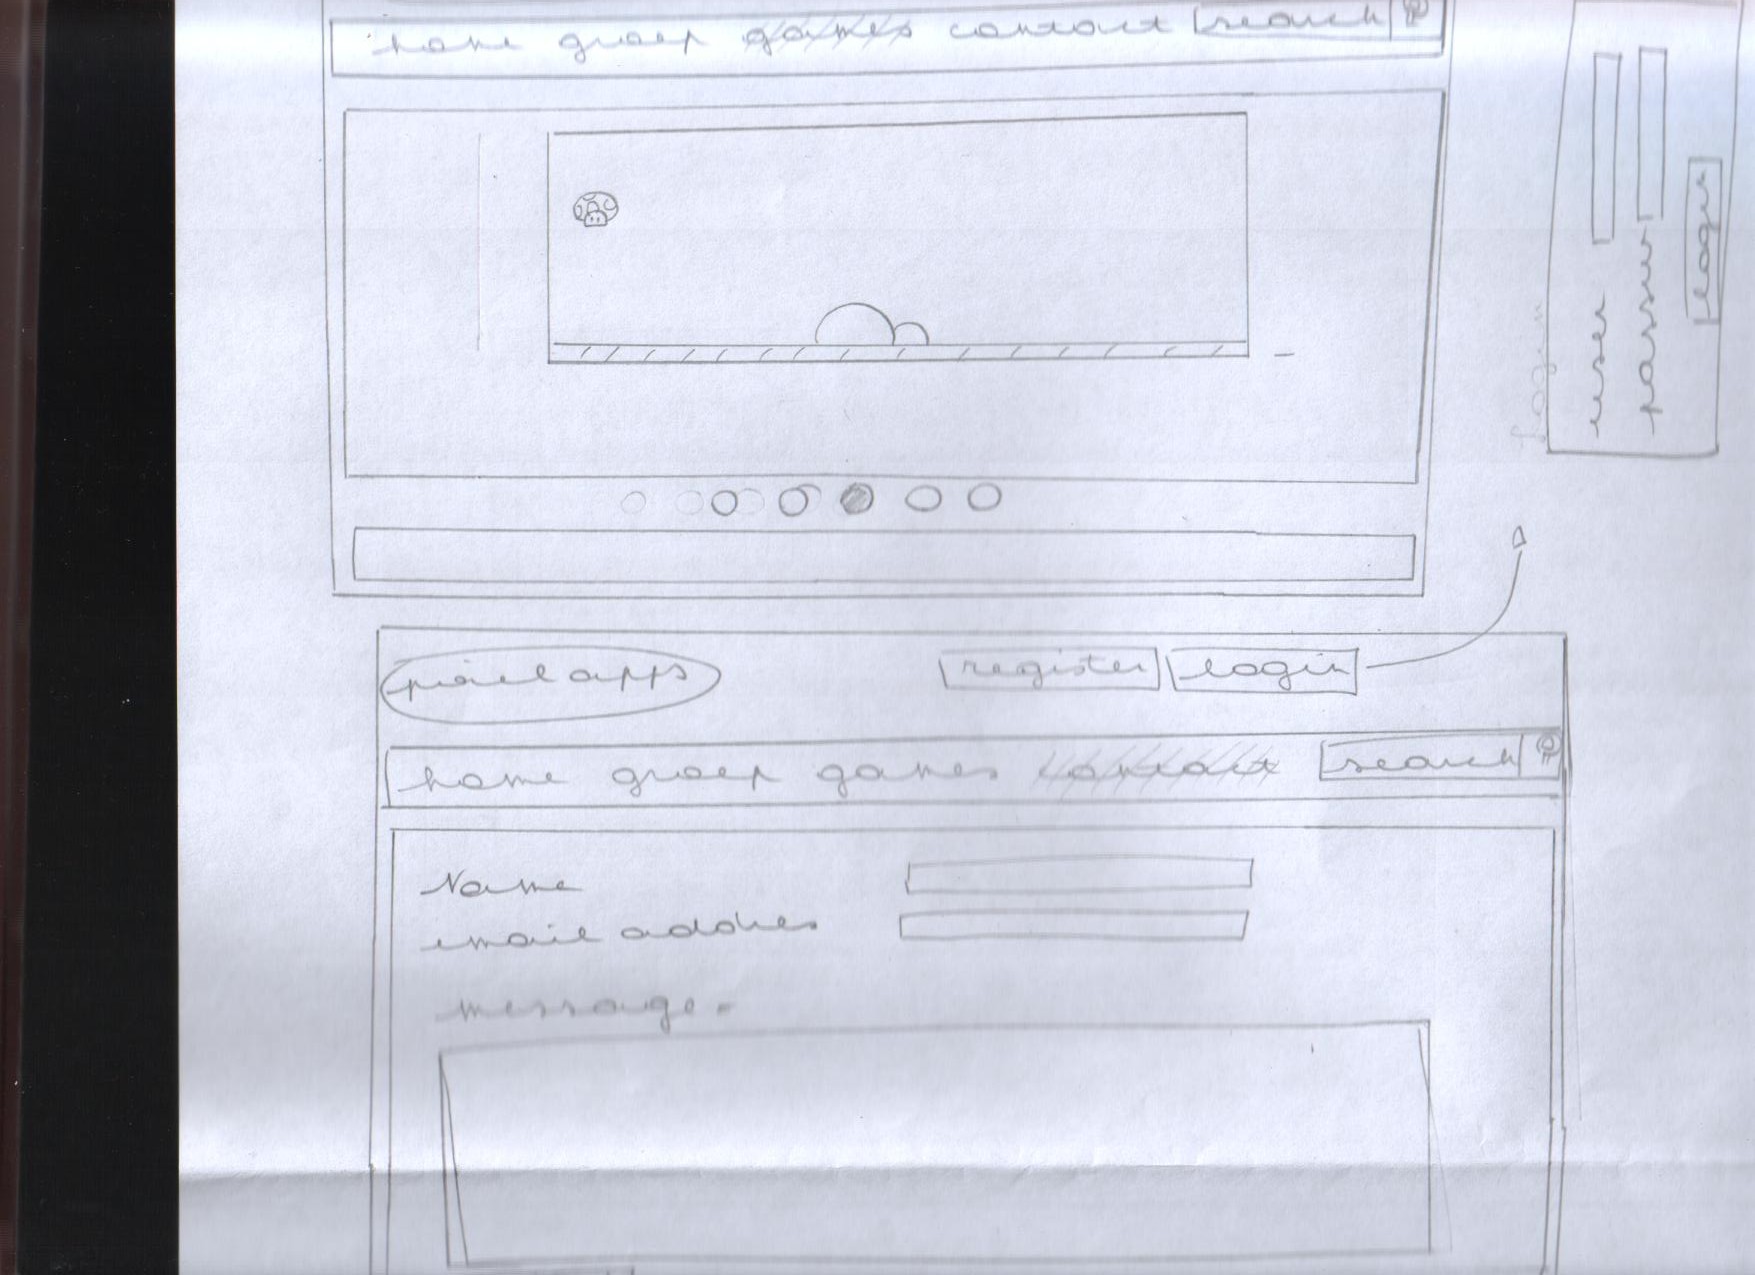 home groep games contact search
login
user
passw
login
pixel apps register login
home groep games contact search
Name
email addres
message.